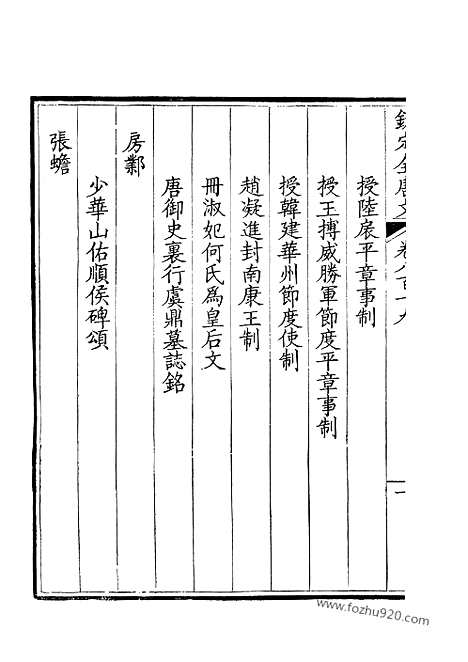 欽定全唐文 卷八百十九 一
授陸扆平章事制
授王摶威勝軍節度平章事制
授韓建華州節度使制
趙凝進封南康王制
冊淑妃何氏為皇后文
唐御史裏行虞鼎墓誌銘
房鄴
少華山佑順侯碑頌
張蟾
www.fozhu920.com